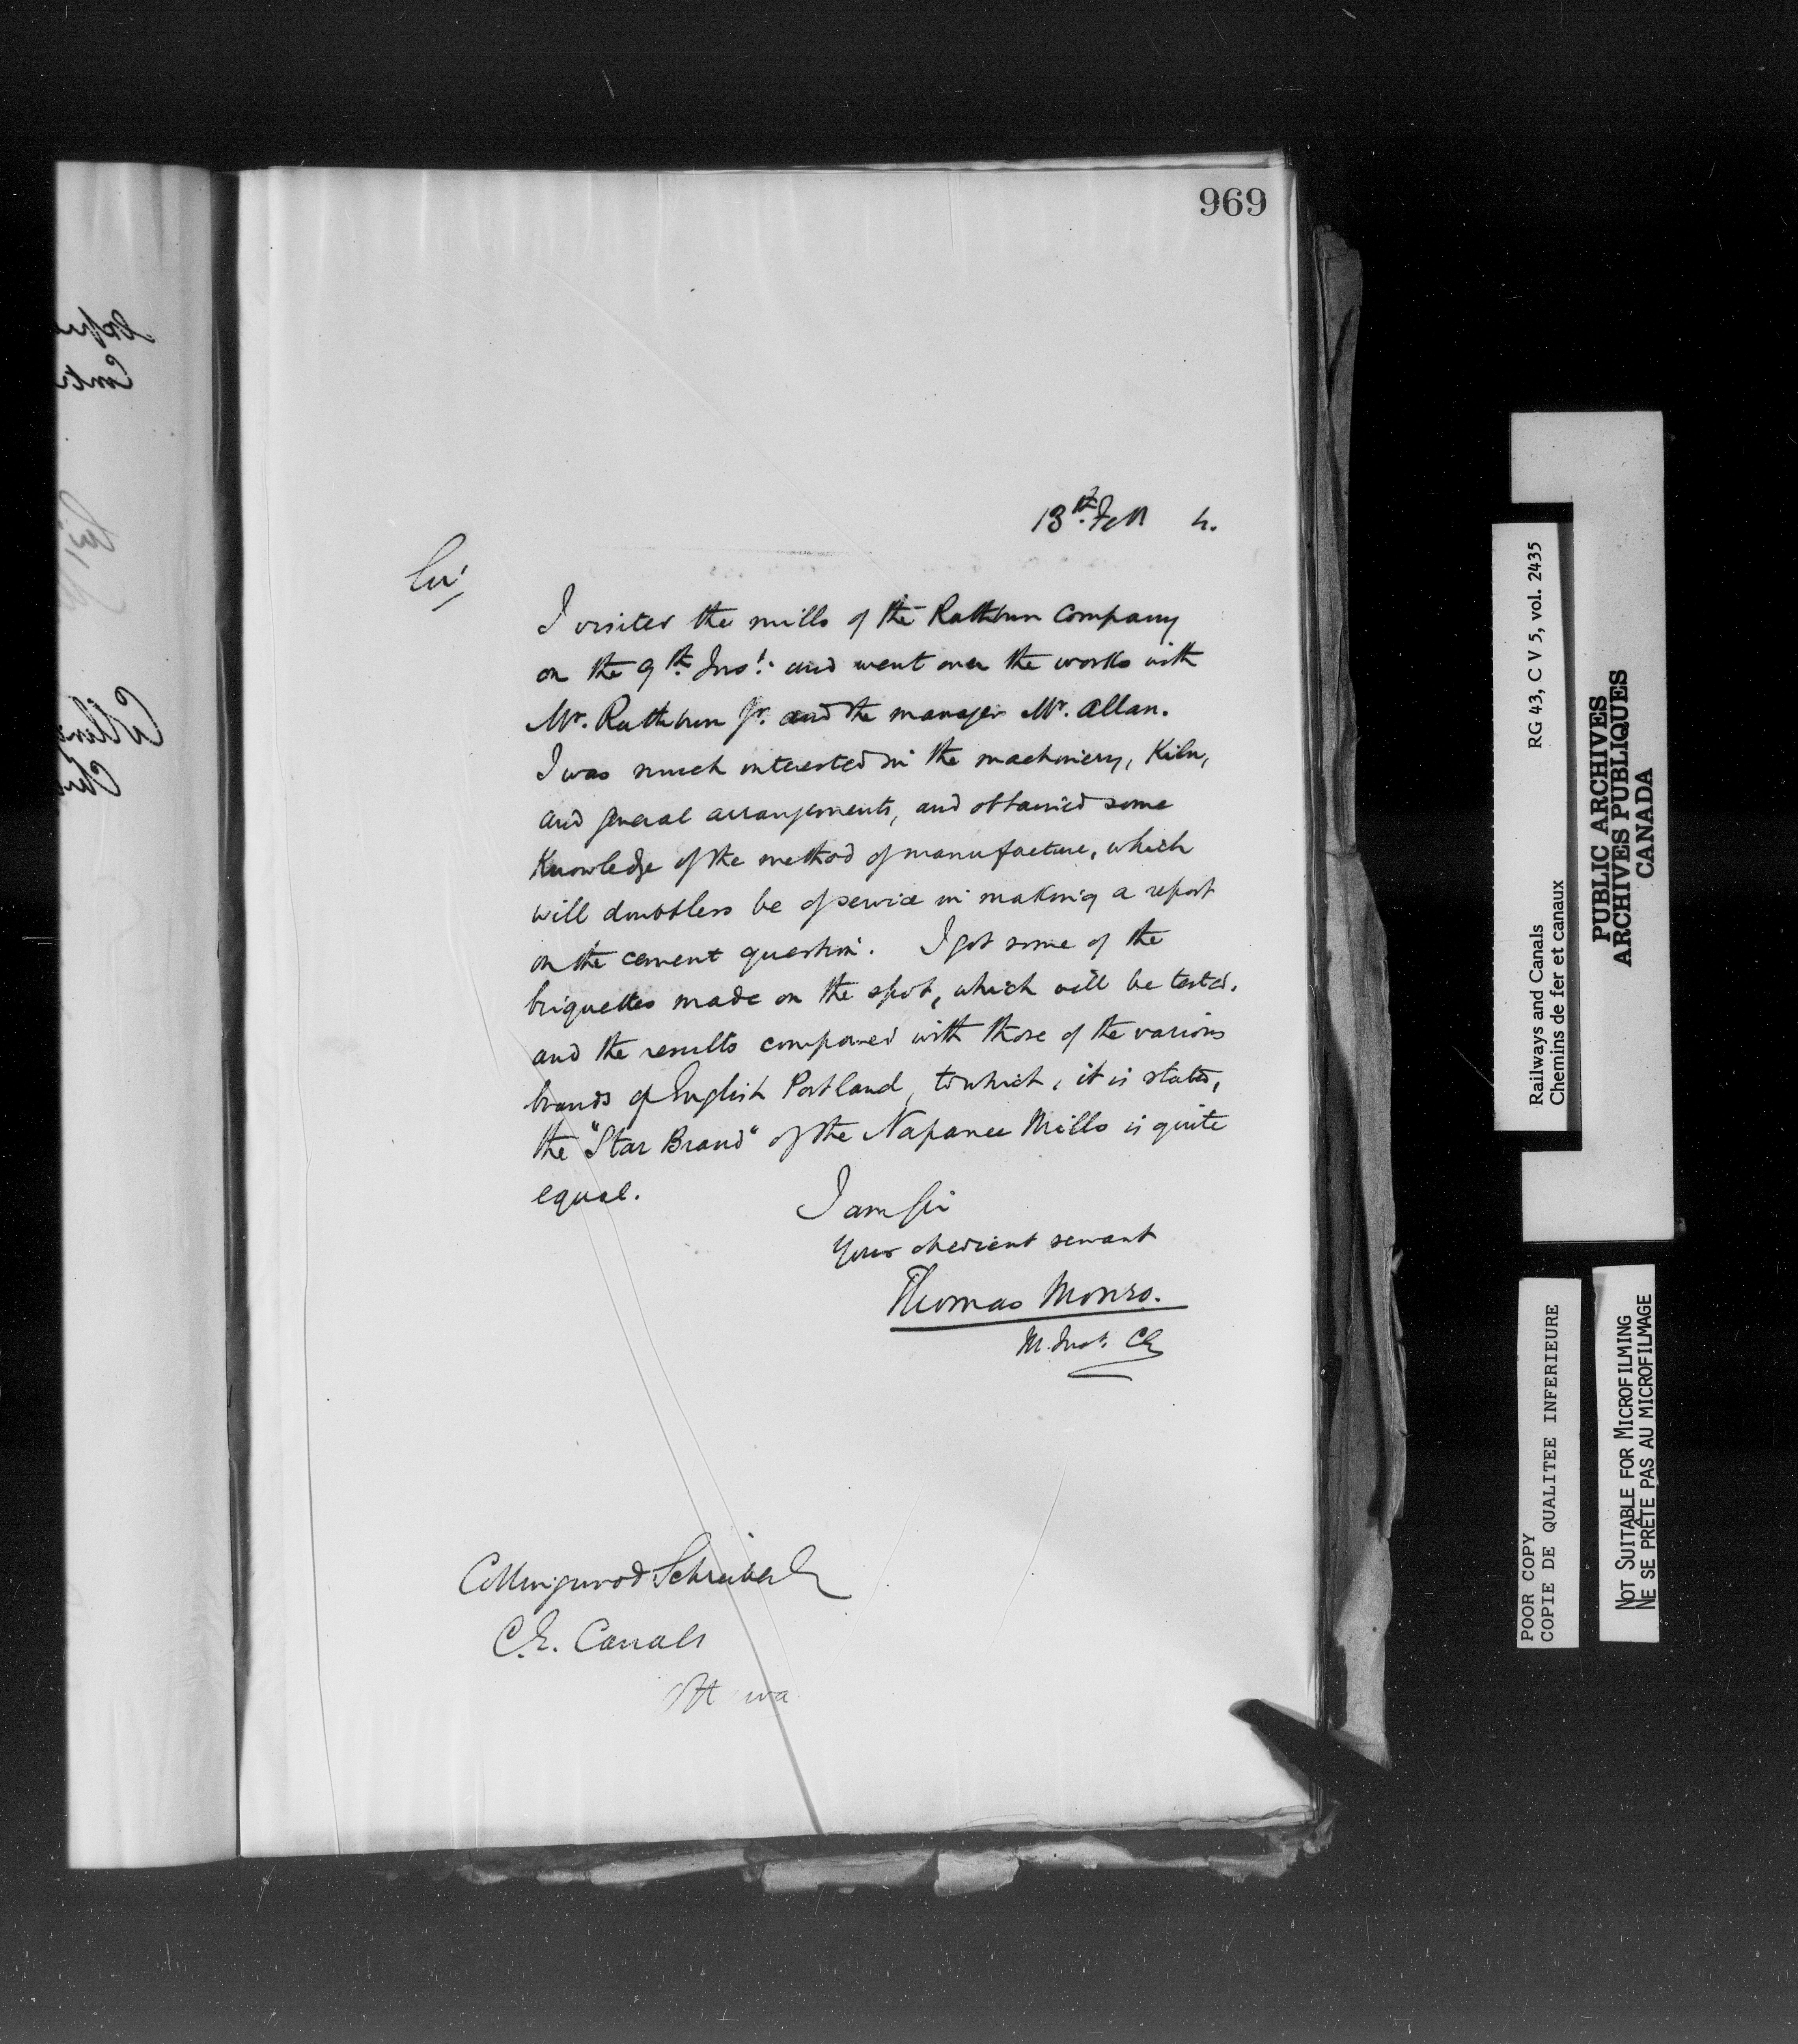 969
13th. Feb 4.
Sir,
I visited the mills of the Rathbun Company
on the 9th. Inst. and went over the works with
Mr. Rathbun Jr. and the manager Mr. Allan.
I was much interested in the machinery, Kiln,
and general arrangements, and obtained some
Knowledge of the method of manufacture, which
will doubtless be of service in making a report
on the cement question. I got some of the
briquettes made on the spot, which will be tested,
and the results compared with those of the various
brands of English Portland, to which, it is stated,
the "Star Brand" of the Napanee Mills is quite
equal.
I am Sir
Your obedient servant
Thomas Monro.
M. Inst. CE
Collingwood Schreiber
C.E. Canals
Ott wa
RG 43, C V 5, vol. 2435
Railways and Canals
Chemins de fer et canaux
PUBLIC ARCHIVES
ARCHIVES PUBLIQUES
CANADA
POOR COPY
COPIE DE QUALITEE INFERIEURE
NOT SUITABLE FOR MICROFILMING
NE SE PRÊTE PAS AU MICROFILMAGE